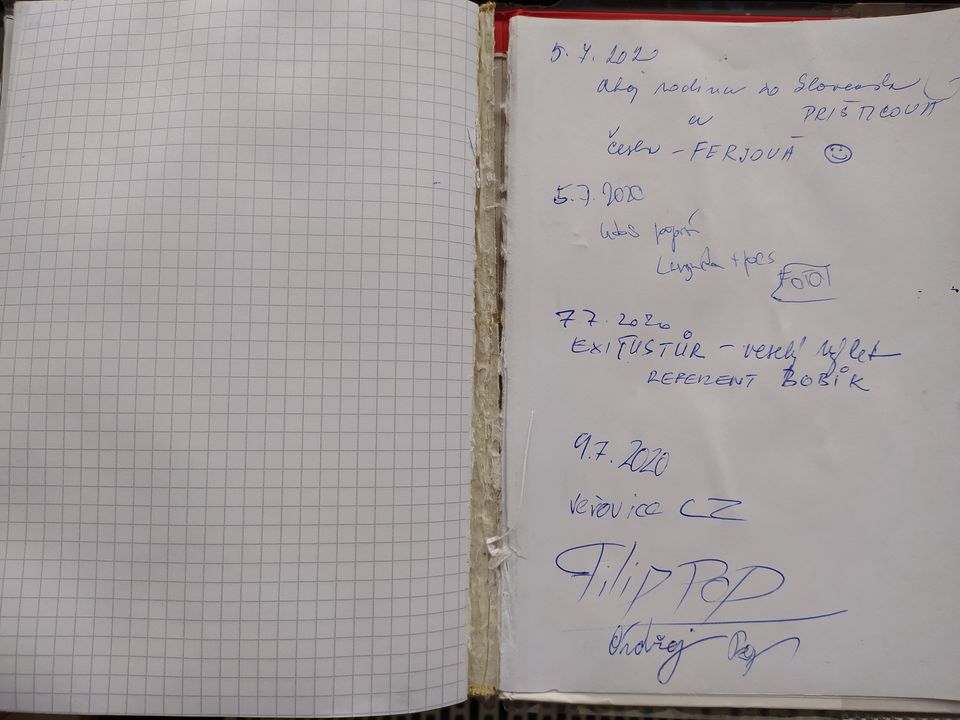 5.7.2020
ahoj rodina zo Slovenska
a PRIŠTICOVÁ
Česka - FERJOVÁ
5.7.2020
+ pes
FOTO!
7.7.2020
EXITUSTŮR - veselý výlet
REFERENT BOBÍK
9.7.2020
Veřovice CZ
Filip Pop
Ondřej Pop